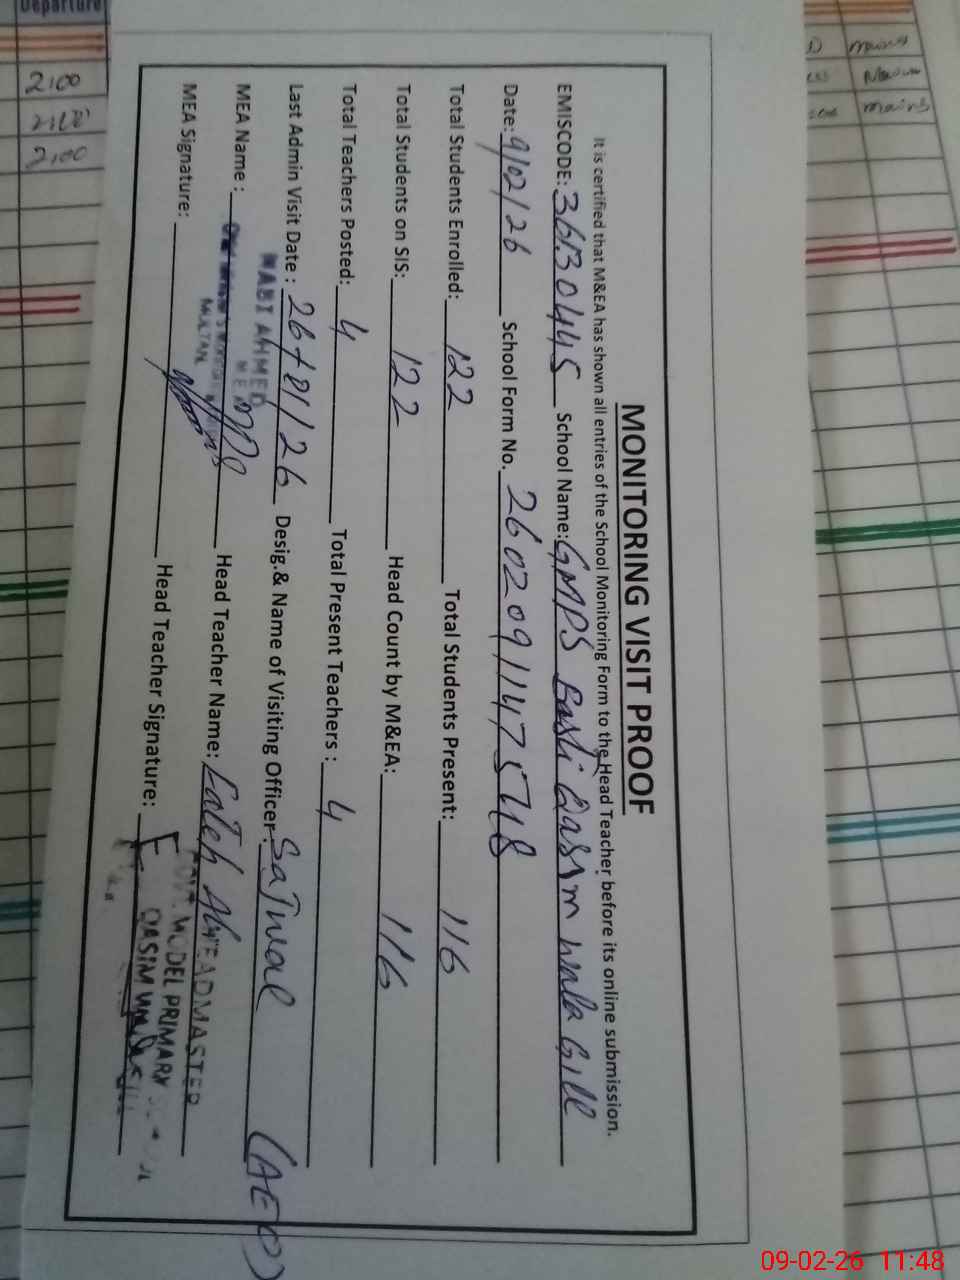 MONITORING VISIT PROOF
It is certified that M&EA has shown all entries of the School Monitoring Form to the Head Teacher before its online submission.
EMISCODE: 36130445 School Name: GMPS Basti Qasim wala Gill
Date: 9/02/26 School Form No. 26020911475548
Total Students Enrolled: 122 Total Students Present: 116
Total Students on SIS: 122 Head Count by M&EA: 116
Total Teachers Posted: 4 Total Present Teachers : 4
Last Admin Visit Date : 26/01/26 Desig.& Name of Visiting Officer: Sajwal (AEO)
MEA Name : NABI AHMED MEA MULTAN Head Teacher Name: Fateh HEADMASTER
MEA Signature: Head Teacher Signature: MODEL PRIMARY QASIM
Departure
2100
2100
2100
mains
mains
09-02-26 11:48